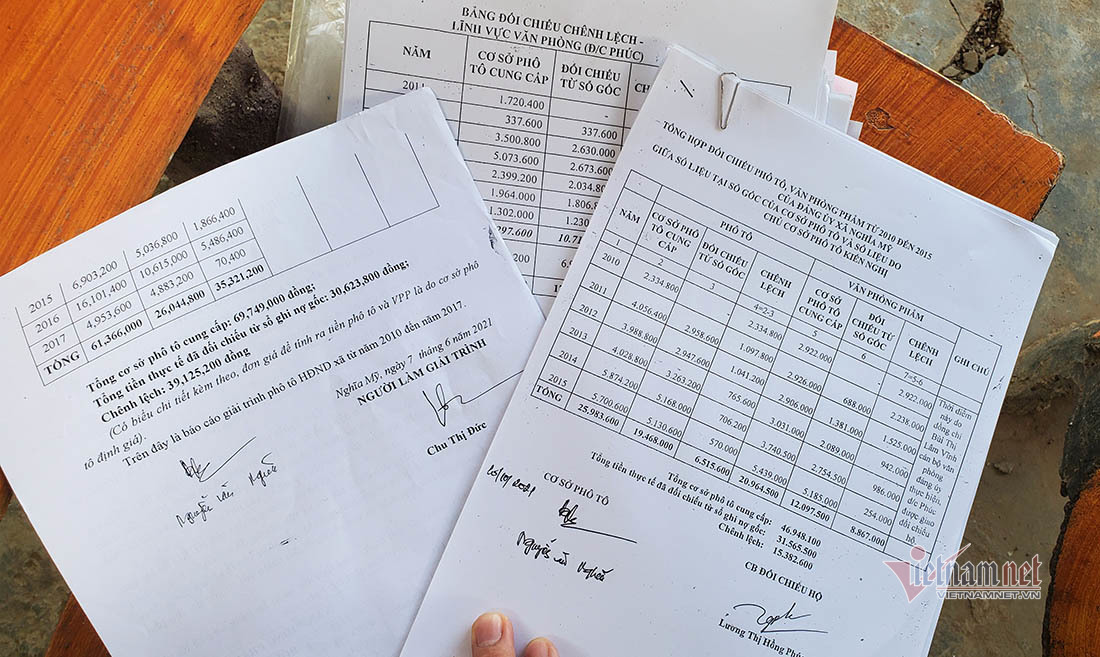 BẢNG ĐỐI CHIẾU CHÊNH LỆCH -
LĨNH VỰC VĂN PHÒNG (Đ/C PHÚC)
NĂM CƠ SỞ PHÔ TÔ CUNG CẤP ĐỐI CHIẾU TỪ SỔ GỐC
1.720.400 -
337.600 337.600
3.500.800 2.630.000
5.073.600 2.673.600
2.399.200 2.034.800
1.964.000
1.302.000
1,866,400
2015 6,903,200 5,036,800 5,486,400
2016 16,101,400 10,615,000 70,400
2017 4,953,600 4,883,200
TỔNG 61,366,000 26,044,800 35,321,200
Tổng cơ sở phô tô cung cấp: 69,749,000 đồng;
Tổng tiền thực tế đã đối chiếu từ sổ ghi nợ gốc: 30,623,800 đồng;
Chênh lệch: 39,125,200 đồng
(Có biểu chi tiết kèm theo, đơn giá để tính ra tiền phô tô và VPP là do cơ sở phô
tô định giá).
Trên đây là báo cáo giải trình phô tô HĐND xã từ năm 2010 đến năm 2017.
Nghĩa Mỹ, ngày 7 tháng 6 năm 2021
NGƯỜI LÀM GIẢI TRÌNH
Chu Thị Đức
Nguyễn Văn Nghĩa
TỔNG HỢP ĐỐI CHIẾU PHÔ TÔ, VĂN PHÒNG PHẨM TỪ 2010 ĐẾN 2015
CỦA ĐẢNG ỦY XÃ NGHĨA MỸ
GIỮA SỐ LIỆU TẠI SỔ GỐC CỦA CƠ SỞ PHÔ TÔ VÀ SỐ LIỆU DO
CHỦ CƠ SỞ PHÔ TÔ KIẾN NGHỊ
NĂM PHÔ TÔ VĂN PHÒNG PHẨM GHI CHÚ
CƠ SỞ PHÔ TÔ CUNG CẤP ĐỐI CHIẾU TỪ SỔ GỐC CHÊNH LỆCH CƠ SỞ PHÔ TÔ CUNG CẤP ĐỐI CHIẾU TỪ SỔ GỐC CHÊNH LỆCH
1 2 3 4=2-3 5 6 7=5-6
2010 2.334.800 2.334.800 2.922.000 2.922.000
2011 4.056.400 2.958.600 1.097.800 2.926.000 688.000 2.238.000
2012 3.988.800 2.947.600 1.041.200 2.906.000 1.381.000 1.525.000
2013 4.028.800 3.263.200 765.600 3.031.000 2.089.000 942.000
2014 5.874.200 5.168.000 706.200 3.740.500 2.754.500 986.000
2015 5.700.600 5.130.600 570.000 5.439.000 5.185.000 254.000
TỔNG 25.983.600 19.468.000 6.515.600 20.964.500 12.097.500 8.867.000
Thời điểm
này do
đồng chí
Bùi Thị
Lâm Vĩnh
cán bộ văn
phòng
đảng ủy
thực hiện,
đ/c Phúc
được giao
đối chiếu
hộ.
Tổng cơ sở phô tô cung cấp: 46.948.100
Tổng tiền thực tế đã đối chiếu từ sổ ghi nợ gốc: 31.565.500
Chênh lệch: 15.382.600
CƠ SỞ PHÔ TÔ
Nguyễn Văn Nghĩa
CB ĐỐI CHIẾU HỘ
Lương Thị Hồng Phúc
Vietnamnet
VIETNAMNET.VN